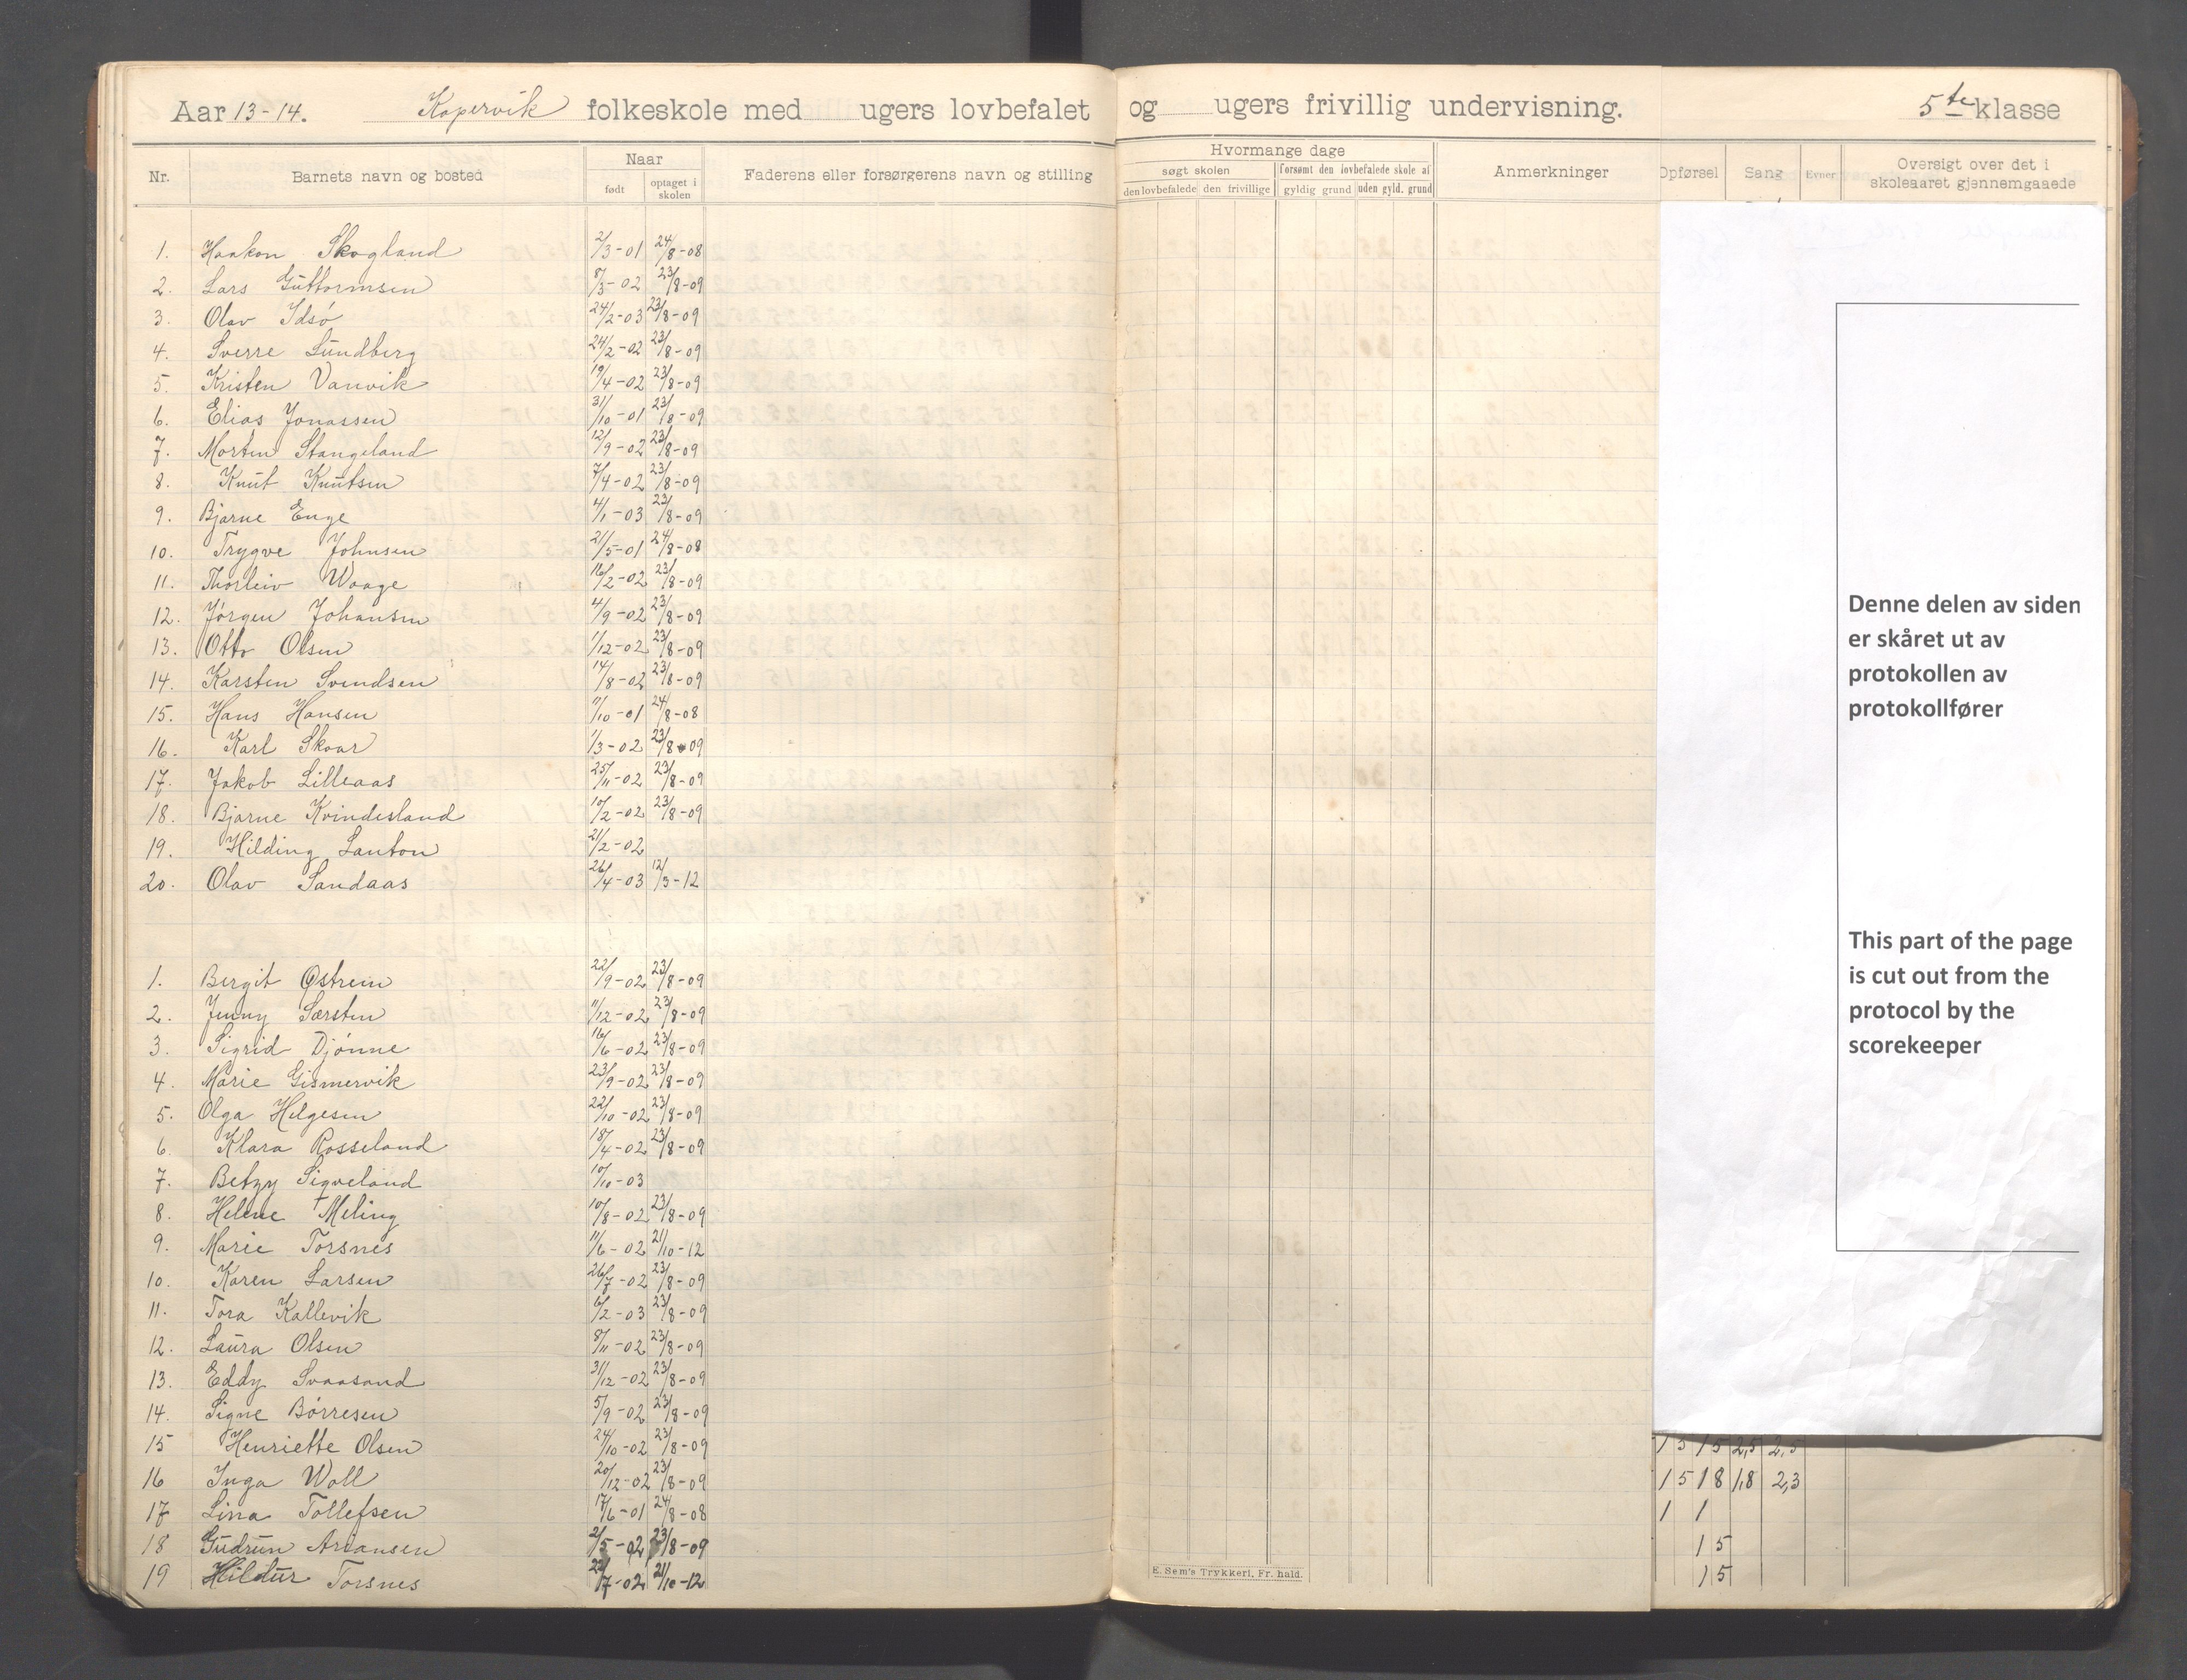 Aar 13-14. Kopervik folkeskole med ugers lovbefalet og ugers frivillig undervisning. 5te klasse
Nr. Barnets navn og bosted Naar født optaget i skolen Faderens eller forsørgerens navn og stilling Hvormange dage søgt skolen den lovbefalede den frivillige forsømt den lovbefalede skole af gyldig grund uden gyld. grund Anmerkninger Opførsel Sang Evner Oversigt over det i skoleaaret gjennemgaaede
1. Haakon Skogland 2/3-01 24/8-08
2. Lars Guttormsen 8/3-02 23/8-09
3. Olav Idsø 24/2-03 23/8-09
4. Sverre Lundberg 24/2-02 23/8-09
5. Kristen Vanvik 19/4-02 23/8-09
6. Elias Jonassen 31/10-01 23/8-09
7. Morten Stangeland 12/9-02 23/8-09
8. Knut Knutsen 7/4-02 23/8-09
9. Bjarne Enge 4/1-03 23/8-09
10. Trygve Johnsen 21/5-01 24/8-08
11. Thorleiv Waage 16/2-02 23/8-09
12. Jørgen Johansen 4/9-02 23/8-09
13. Otto Olsen 1/12-02 23/8-09
14. Karsten Svendsen 14/8-02 23/8-09
15. Hans Hansen 11/10-01 24/8-08
16. Karl Skaar 1/3-02 23/8-09
17. Jakob Lilleaas 25/11-02 23/8-09
18. Bjarne Kvindesland 10/2-02 23/8-09
19. Hilding Lanton 21/2-02
20. Olav Sandaas 26/4-03 12/3-12
1. Bergit Østrem 22/9-02 23/8-09
2. Jenny Særsten 11/12-02 23/8-09
3. Sigrid Djønne 16/6-02 23/8-09
4. Marie Gismervik 23/9-02 23/8-09
5. Olga Helgesen 22/10-02 23/8-09
6. Klara Rosseland 18/4-02 23/8-09
7. Betzy Sigveland 10/10-03
8. Helene Meling 10/8-02 23/8-09
9. Marie Torsnes 11/6-02 21/10-12
10. Karen Larsen 26/7-02 23/8-09
11. Tora Kallevik 6/2-03 23/8-09
12. Laura Olsen 8/11-02 23/8-09
13. Eddy Svaasand 31/12-02 23/8-09
14. Signe Børresen 5/9-02 23/8-09
15 Henriette Olsen 24/10-02 23/8-09 15 15 2,5 2,5
16 Inga Woll 20/12-02 23/8-09 15 18 1,8 2,3
17 Lina Tollefsen 17/6-01 24/8-08 1 1
18 Gudrun Ariansen 2/5-02 23/8-09 15
19 Hildur Torsnes 22/7-02 21/10-12 15
E. Sem's Trykkeri, Fr. hald.
Denne delen av siden
er skåret ut av
protokollen av
protokollfører
This part of the page
is cut out from the
protocol by the
scorekeeper